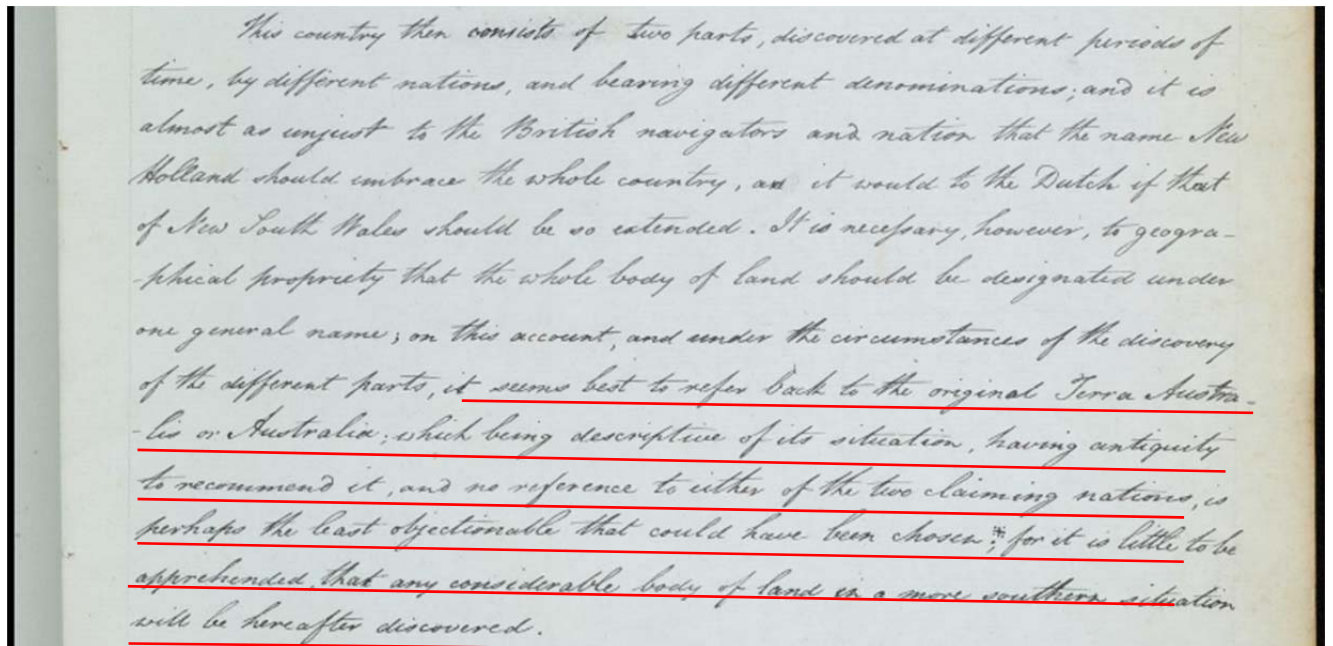 This country then consists of two parts, discovered at different periods of
time, by different nations, and bearing different denominations; and it is
almost as unjust to the British navigators and nation that the name New
Holland should embrace the whole country, as it would to the Dutch if that
of New South Wales should be so extended. It is neceſsary, however, to geogra-
-phical propriety that the whole body of land should be designated under
one general name; on this account, and under the circumstances of the discovery
of the different parts, it seems best to refer back to the original Terra Austra-
-lis or Australia; which being descriptive of its situation, having antiquity
to recommend it, and no reference to either of the two claiming nations, is
perhaps the least objectionable that could have been chosen*; for it is little to be
apprehended, that any considerable body of land in a more southern situation
will be hereafter discovered.